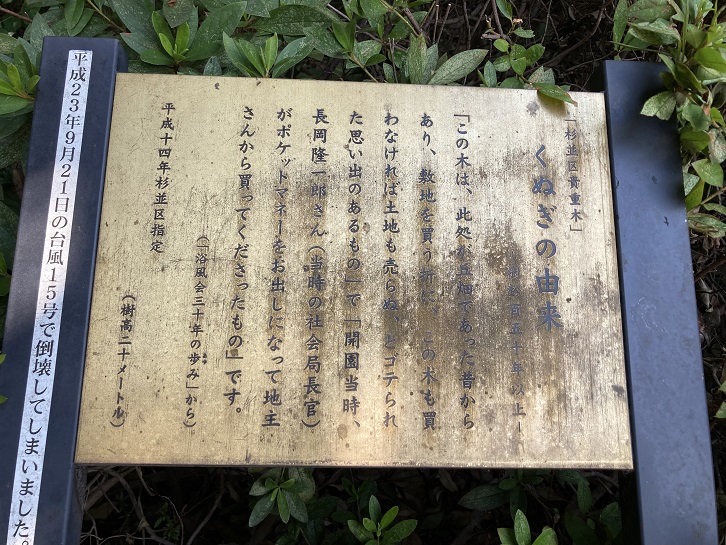 「杉並区貴重木」
くぬぎの由来
ー樹齢百五十年以上ー
「この木は、此処が丘畑であった昔から
あり、敷地を買う折に、この木も買
わなければ土地も売らぬ、とゴテられ
た思い出のあるもの」で「開園当時、
長岡隆一郎さん(当時の社会局長官)
がポケットマネーをお出しになって地主
さんから買ってくださったもの」です。
(「浴風会三十年の歩み」から)
平成十四年杉並区指定
(樹高二十メートル)
平成23年9月21日の台風15号で倒壊してしまいました。